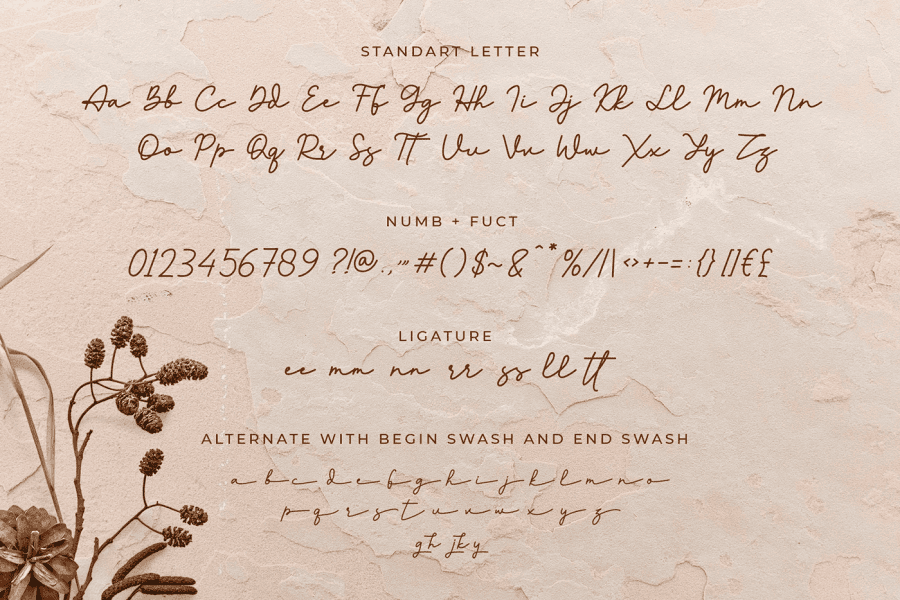 STANDART LETTER
Aa Bb Cc Dd Ee Ff Gg Hh Ii Jj Kk Ll Mm Nn
Oo Pp Qq Rr Ss Tt Uu Vv Ww Xx Yy Zz
NUMB + FUCT
0123456789 ?!@.,'"#()$~&^*%//|\<>+-=:{}[]€£
LIGATURE
ee mm nn rr ss ll tt
ALTERNATE WITH BEGIN SWASH AND END SWASH
a b c d e f g h i j k l m n o
p q r s t u v w x y z
gh jk y